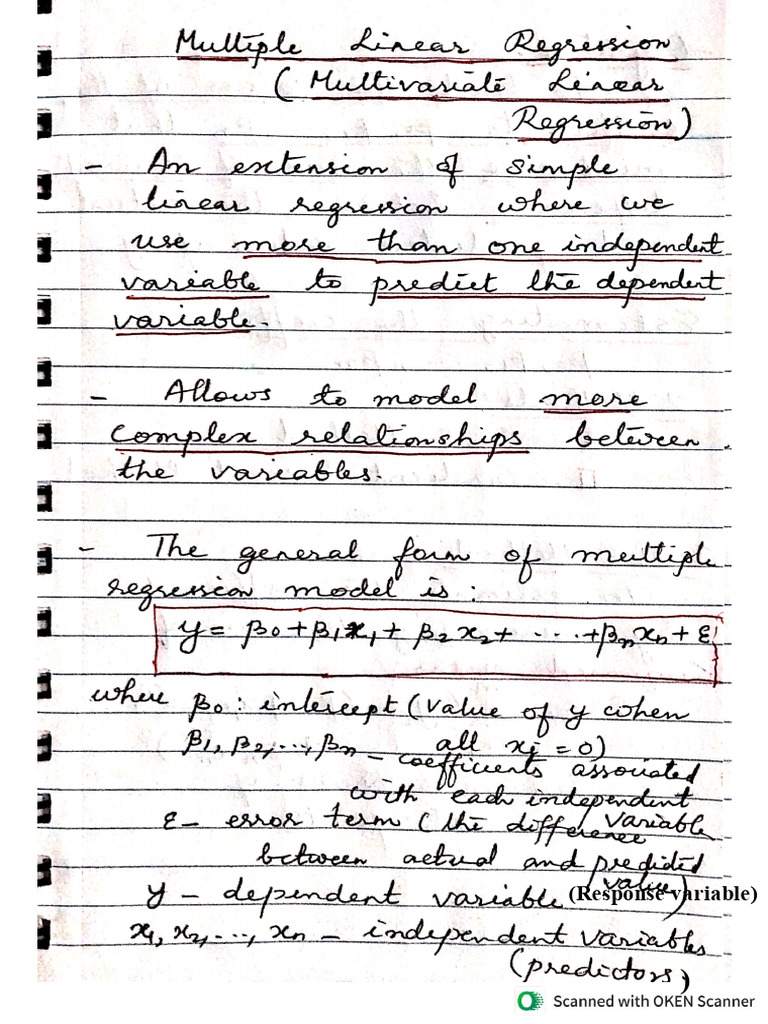 Multiple Linear Regression
(Multivariate Linear
Regression)
- An extension of simple
linear regression where we
use more than one independent
variable to predict the dependent
variable.
- Allows to model more
complex relationships between
the variables.
- The general form of multiple
regression model is:
y = β0 + β1x1 + β2x2 + ... + βnxn + ε
where β0: intercept (value of y when
all xi = 0)
β1, β2, ..., βn - coefficients associated
with each independent
variable
ε - error term (the difference
between actual and predicted
value)
y - dependent variable (Response variable)
x1, x2, ..., xn - independent variables
(predictors)
Scanned with OKEN Scanner